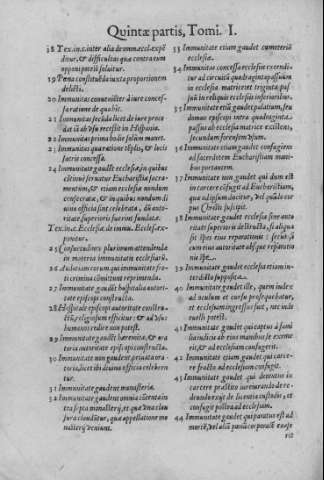 Quintæ partis, Tomi. I.
18 Tex. in c. inter alia de imm. eccl. expē
ditur, & difficultas quæ contra eum
opponi poterit soluitur.
19 Pœna constituēda iuxta proportionem
delicti.
20 Immunitas conueniēter à iure conces-
saratione de quabis.
21 Immunitas secūdū de iure proce
dat & de vsu recepto in Hispania.
22 Immunitas prima bullæ solum mouet.
23 Immunitas quaratione tēplis, & locis
sacris concessa.
24 Immunitate gaudēt ecclesiæ, in quibus
cōtinuò seruatur Eucharistia sacra-
mentum, & etiam ecclesiæ nondum
consecratæ, & in quibus nondum di
uina officia sint celebrata, dū autho-
ritate superioris fuerint fundatæ.
Tex. in c. Ecclesiæ de immu. Ecclesiæ ex-
ponitur.
25 Consuetudines plurimum attendenda
in materia immunitatis ecclesiarū.
26 Aedium eorum qui immunitate fra-
cti crimina cōmittunt reprimenda.
27 Immunitate gaudēt hospitalia autori-
tate episcopi constructa.
28 Hospitale episcopi autoritate constru-
ctū, religiosum efficitur: & ad vsus
humanos redire non potest.
29 Immunitate gaudēt haremitæ, & ora
toria autoritate episcopi constructa.
30 Immunitate non gaudent priuata ora-
toria, licet ibi diuina officia celebren
tur.
31 Immunitate gaudent monasteria.
32 Immunitate gaudent omnia cōtenta in
tra septa monasterij, et quæ vna clau
sura clauduntur, quæ appellatione mo
nasterij veniunt.
33 Immunitate etiam gaudet cumeteriū
ecclesiæ.
34 Immunitas concessa ecclesiæ extendi-
tur ad circuitū quadraginta passuum
in ecclesia matrice et triginta pas-
suū in reliquis ecclesijs inferioribus.
35 Immunitate etiā gaudet palatium, seu
domus episcopi intra quadraginta
passus ab ecclesia matrice existens,
secundum forensem vsum.
36 Immunitate etiam gaudet confugiens
ad sacerdotem Eucharistiam mani-
bus portantem.
37 Immunitate non gaudet qui dum est
in carcere cōfugit ad Eucharistiam,
quæ ad ipsum ducitur, vel quādo cor-
pus Christi suscipit.
38 Immunitate gaudet ecclesia sine auto
ritate superioris destructa, si aliqua
sit spes eius reparationis: secus si
cum eius autoritate absque reparatio
nis spe.
39 Immunitate gaudet ecclesia etiam in-
terdicto supposita.
40 Immunitate gaudet ille, quem iudex
ad oculum et cursu prosequebatur,
et ecclesiam ingressus fuit, nec inde
euelli potest.
41 Immunitate gaudet qui captus à fami
lia iudicis ab eius manibus se exeme
rit, & ad ecclesiam confugerit.
42 Immunitate etiam gaudet qui carce-
re fracto ad ecclesiam confugit.
43 Immunitate gaudet qui detentus in
carcere præstito iuramento de re-
deundo exit de licentia custodis, et
confugit postea ad ecclesiam.
44 Immunitate gaudet qui paratus est ad
mortē, vel aliā pœnā corporalē exeqe